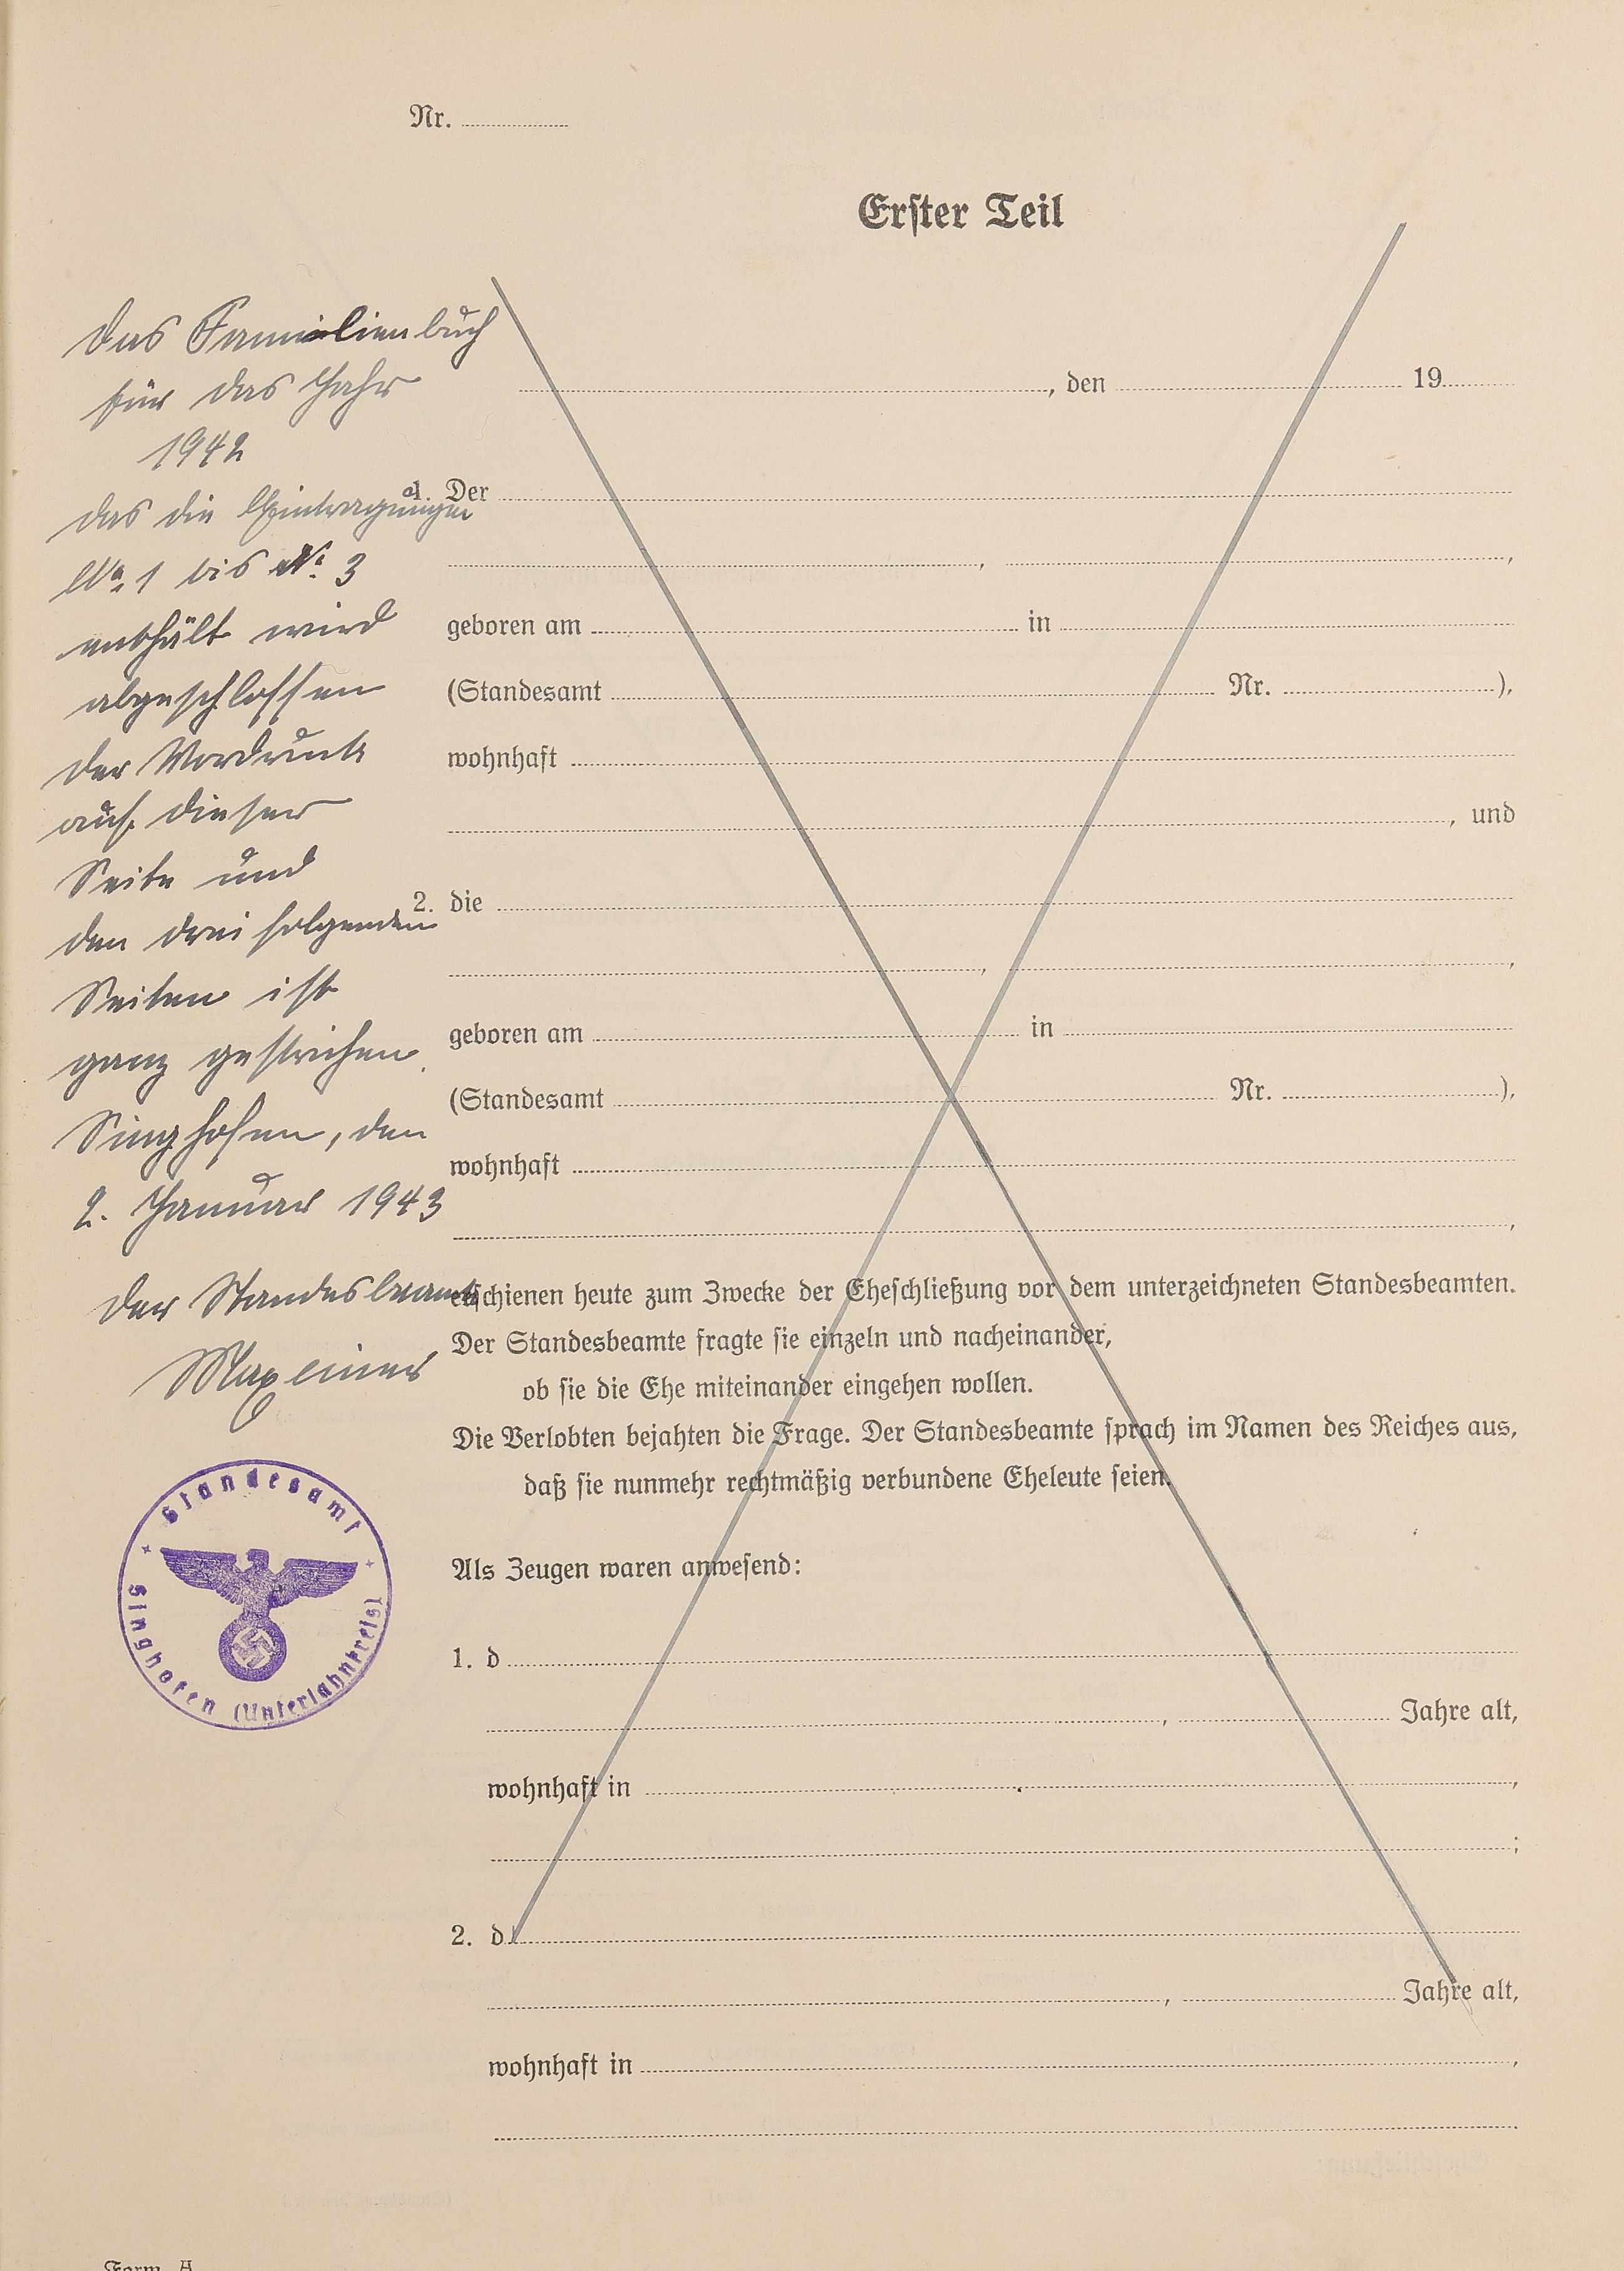 Nr.
Erster Teil
Das Familienbuch
für das Jahr
1942
das die Eintragungen
No. 1 bis No. 3
enthält wird
abgeschlossen
der Vordruck
auf dieser
Seite und
den drei folgenden
Seiten ist
ganz gestrichen.
Singhofen, den
2. Januar 1943
Der Standesbeamte
Maxeiner
Standesamt
Singhofen (Unterlahnkreis)
, den 19
1. Der
, ,
geboren am in
(Standesamt Nr. ),
wohnhaft
, und
2. die
, ,
geboren am in
(Standesamt Nr. ),
wohnhaft
,
erschienen heute zum Zwecke der Eheschließung vor dem unterzeichneten Standesbeamten.
Der Standesbeamte fragte sie einzeln und nacheinander,
ob sie die Ehe miteinander eingehen wollen.
Die Verlobten bejahten die Frage. Der Standesbeamte sprach im Namen des Reiches aus,
daß sie nunmehr rechtmäßig verbundene Eheleute seien.
Als Zeugen waren anwesend:
1. d
, Jahre alt,
wohnhaft in ,
;
2. d
, Jahre alt,
wohnhaft in ,
.
Form. A